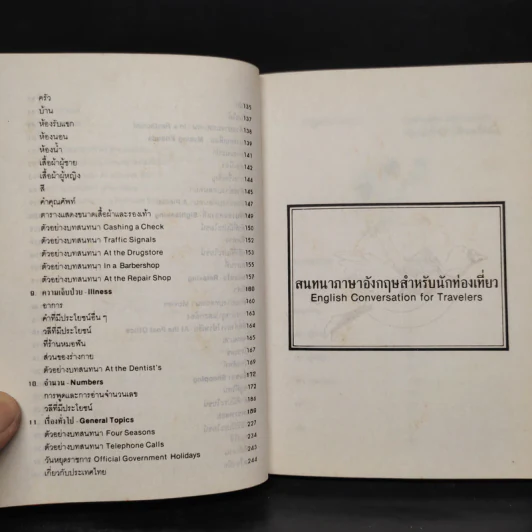 ครัว 137
บ้าน 137
ห้องรับแขก 138
ห้องนอน 139
ห้องน้ำ 141
เสื้อผ้าผู้ชาย 142
เสื้อผ้าผู้หญิง 144
สี 145
คำคุณศัพท์ 147
ตารางแสดงขนาดเสื้อผ้าและรองเท้า 149
ตัวอย่างบทสนทนา Cashing a Check 150
ตัวอย่างบทสนทนา Traffic Signals 152
ตัวอย่างบทสนทนา At the Drugstore 155
ตัวอย่างบทสนทนา In a Barbershop 157
ตัวอย่างบทสนทนา At the Repair Shop 157
9. ความเจ็บป่วย - Illness
อาการ 160
คำที่มีประโยชน์อื่น ๆ 161
วลีที่มีประโยชน์ 163
ที่ร้านหมอฟัน 164
ส่วนของร่างกาย 167
ตัวอย่างบทสนทนา At the Dentist's 169
10. จำนวน - Numbers 172
การพูดและการอ่านจำนวนเลข 172
วลีที่มีประโยชน์
11. เรื่องทั่วไป - General Topics 227
ตัวอย่างบทสนทนา Four Seasons 234
ตัวอย่างบทสนทนา Telephone Calls 242
วันหยุดราชการ Official Government Holidays 243
เกี่ยวกับประเทศไทย 244
สนทนาภาษาอังกฤษสำหรับนักท่องเที่ยว
English Conversation for Travelers